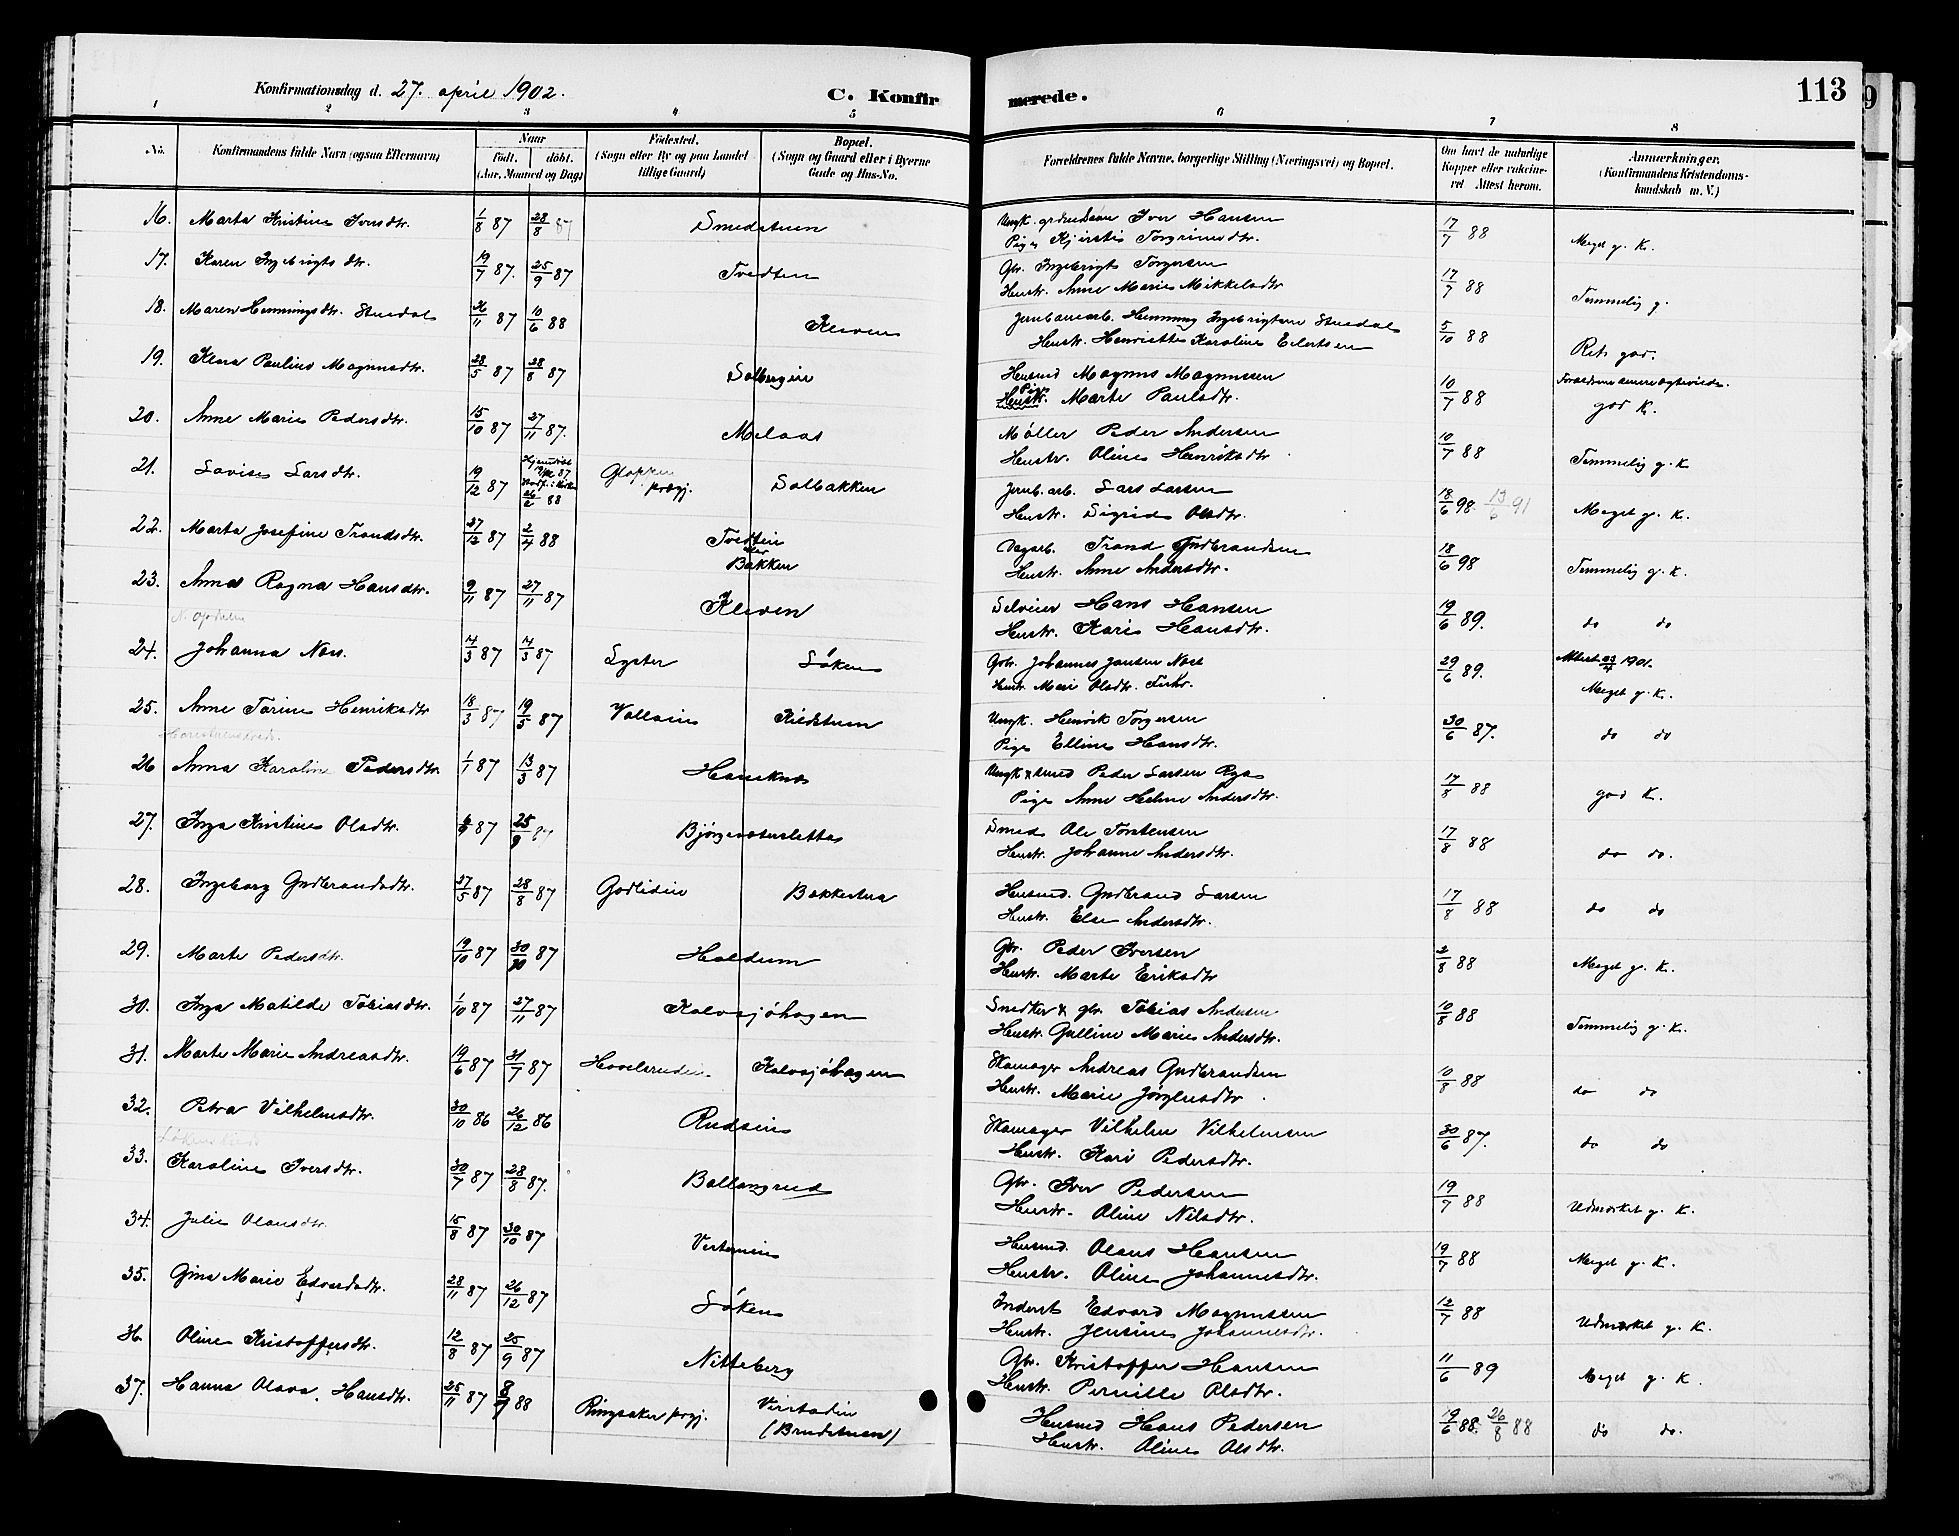 Konfirmationsdag d. 27. april 1902.
C. Konfirmerede.
113
1 2 3 4 5 6 7 8
No. Konfirmandens fulde Navn (ogsaa Efternavn) Naar født. døbt. (Aar, Maaned og Dag) Fødested. (Sogn eller By og paa Landet tillige Gaard) Bopæl. (Sogn og Gaard eller i Byerne Gade og Hus-No. Forældrenes fulde Navne, borgerlige Stilling (Næringsvei) og Bopæl. Om havt de naturlige Kopper eller vakcineret Attest herom. Anmærkninger. (Konfirmandens Kristendomskundskab m. V.)
16. Marta Kristine Iversdtr. 1/8 87 28/8 87 Smedstuen Ungk. Iver Hansen 17/7 88 Meget g. K.
Pige Kjersti Torgrimsdtr.
17. Karen Ingebrigtsdtr. 19/7 87. 25/9 87 Tvedten Gbr. Ingebrigt Torgersen 17/7 88 Temmelig g.
Hustr. Anne Marie Mikkelsdtr
18. Maren Henningsdtr. Stuedal 26/11 87 10/6 88 Kleven Jernbanearb. Henning Ingebrigtsen Stuedal 5/10 88 Ret god.
Hustr. Henriette Karoline Eilertsen
19. Klara Pauline Magnusdtr. 28/5 87 28/8 87 Solbergin Husmd Magnus Magnussen 10/7 88 Forældrene senere ægteviede.
Pige Hustr. Marte Paulsdtr. god K.
20. Anne Marie Pedersdtr. 15/10 87 27/11 87. Melaas Møller Peder Andersen 10/7 88 Temmelig g. K
Hustr. Oline Henriksdtr.
21. Lovise Larsdtr. 19/12 87 26/2 88 Gloppen prægj. Solbakken Jernb. arb. Lars Larsen 18/6 98. 13/6 91 Meget g. K.
Hustr. Sigrid Olsdtr.
22. Marta Josefine Trondsdtr. 27/12 87 2/4 88 Tvedten Bakken Vegarb. Trond Gudbrandsen 18/6 98 Temmelig g. K.
Hustr. Anne Andersdtr.
23. Anna Ragna Hansdtr. 9/11 87 27/11 87 Kleven Selveier Hans Hansen 19/6 89. do do
Hustr. Kari Hansdtr.
24. Johanna Næss. 4/3 87 4/3 87 Lyster Løken Gbr. Johannes Jansen Næss 29/6 89. Attest 23/4 1901.
Hustr. Mari Olsdtr. Meget g. K.
25. Anne Torine Henriksdtr 18/3 87 19/5 87 Vollain Kildstuen Ungk. Henrik Torgersen 30/6 87. do do
Pige Elline Hansdtr.
26 Anna Karolin Pedersdtr. 1/1 87 13/3 87 Haneknæ Ungk & smed Peder Larsen Rya 17/8 88 god K.
Pige Anne Helene Andersdtr.
27. Inga Kristine Olsdtr. 87 25/9 87 Bjørgesæterslettas Smed Ole Torstensen 17/8 88 do do.
Hustr. Johanne Andersdtr.
28. Ingeborg Gudbrandsdtr. 27/5 87 28/8 87 Godlidin Bakkestua Husmd. Gudbrand Larsen 17/8 88 do do
Hustr. Else Andersdtr.
29. Marte Pedersdtr. 19/10 87 30/10 87 Holdum Gbr. Peder Iversen 2/8 88 Meget g. K.
Hustr. Marte Eriksdtr
30. Inga Matilde Tobiasdtr. 1/10 87 27/11 87 Kalvsjøhagen Snedker & gbr. Tobias Andersen 10/8 88 Temmelig g. K.
Hustr. Galline Marie Andersdtr.
31. Marte Marie Andreasdtr. 19/6 87 31/7 87 Hovelsruden Kalvsjøhagen Skomager Andreas Gudbrandsen 10/8 88 do do
Hustr. Marie Jørgensdtr.
32. Petra Vilhelmsdtr. 30/10 86 26/12 86 Rudsin Skomager Vilhelm Vilhelmsen 30/6 87. do do
Hustr. Kari Pedersdtr.
33. Karoline Iversdtr. 30/7 87 28/8 87. Ballangrud Gbr. Iver Pedersen 19/7 88 Udmærket g. K.
Hustr. Oline Nilsdtr.
34. Julie Olausdtr. 15/8 87 30/10 87 Vestenin Husmd. Olaus Hansen 19/7 88 Meget g. K.
Hustr. Oline Johannesdtr.
35. Gina Marie Edvardsdtr. 28/11 87 26/12 87 Løken Inderst Edvard Magnussen 12/7 88 Udmærket g. K.
Hustr. Jensine Johannesdtr.
36 Oline Kristoffersdtr. 12/8 87 25/9 87 Nitteberg Gbr. Kristoffer Hansen 11/6 89 Meget g. K.
Hustr. Pernille Olsdtr.
37. Hanna Olava Hansdtr. 25/11 87 88 Ringsaker prgj. Virstadin Husmd Hans Pedersen 19/6 88. 26/8 88 do do.
(Brudstuen) Hustr. Oline Olsdtr.